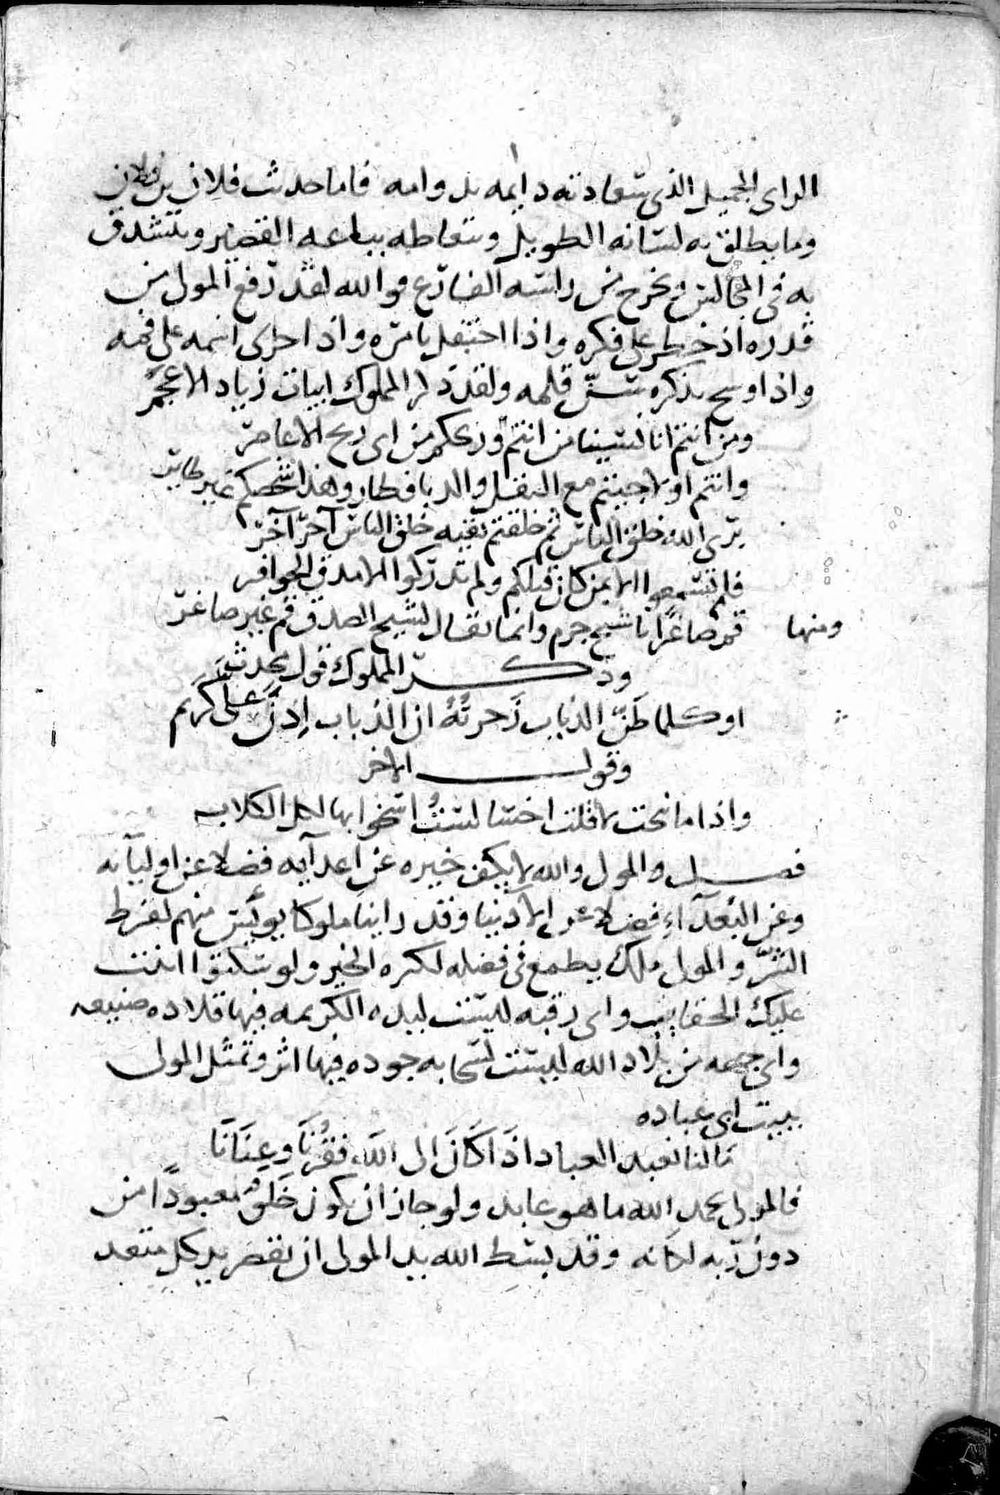 الراى الجميل الذى سعادته دايمه بدوامه فاما حديث فلان بن فلان
وما يطلق به لسانه الطويل ويتعاطه بباعه القصير ويتشدق
به فى المجالس ويخرج من راسه الفارغ فوالله لقد رفع المولى من
قدره اذ خطر على فكره واذا احتفل بامره واذا اجرى اسمه على فمه
واذا وسخ بذكره سن قلمه ولقد ذكر المملوك ابيات زياد الاعجم
ومن انتم انا نسينا من انتم وريحكم من اى ريح الاعاصر
وانتم اولا جيتم مع البقل والدبا فطار وهذا شخصكم غير طاير
يرى الله خلق الناس ثم خلقتم بقيه خلق الناس آخر آخر
فلم تسمعوا الا بمن كان قبلكم ولم تدركوا الا مدق الحوافر
ومنها قم صاغرا يا شيخ جرم وانما يقال لشيخ الصدق قم غير صاغر
وذكر المملوك قول محدث
او كلما طن الذباب زجرته ان الذباب اذن على كريم
وقول الاخر
واذا ما نحت لا قلت اخسا لست اسخو بها لكل الكلاب
فصل والمولى والله لا يكف خيره عن اعدآيه فضلا عن اوليآيه
وعن البعدآء فضلا عن الادنيا وقد راينا ملوكا يويس منهم لفرط
الشر والمولى ملك يطمع فى فضله لكثره الخير ولو سكتوا اثنت
عليك الحقايب واى رقبه ليست ليده الكريمه فيها قلاده صنيعه
واى جهه من بلاد الله ليست لسحابه جوده فيها اثر وتمثل المولى
ببيت ابى عباده
مالنا نعبد العباد اذا كان الى الله فقرنا وغنانا
فالمولى يحمد الله ما هو عابد ولو جاز ان يكون خلق معبودا من
دون ربه لكانه وقد بسط الله يد المولى ان يقصر يد كل متعد